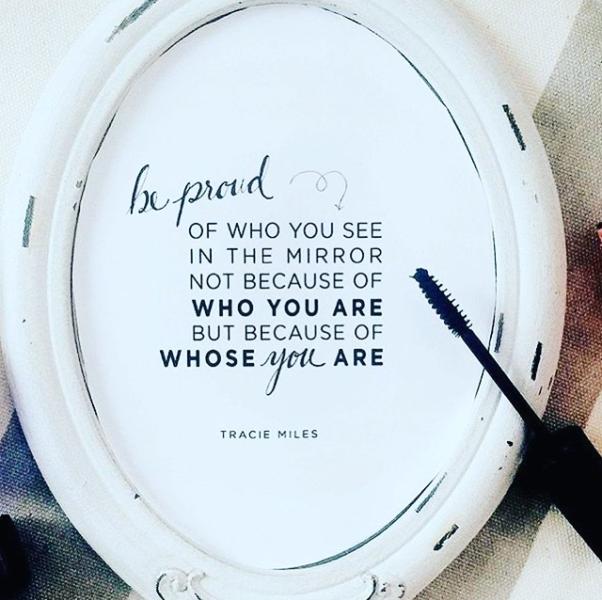 be proud
OF WHO YOU SEE
IN THE MIRROR
NOT BECAUSE OF
WHO YOU ARE
BUT BECAUSE OF
WHOSE you ARE
TRACIE MILES